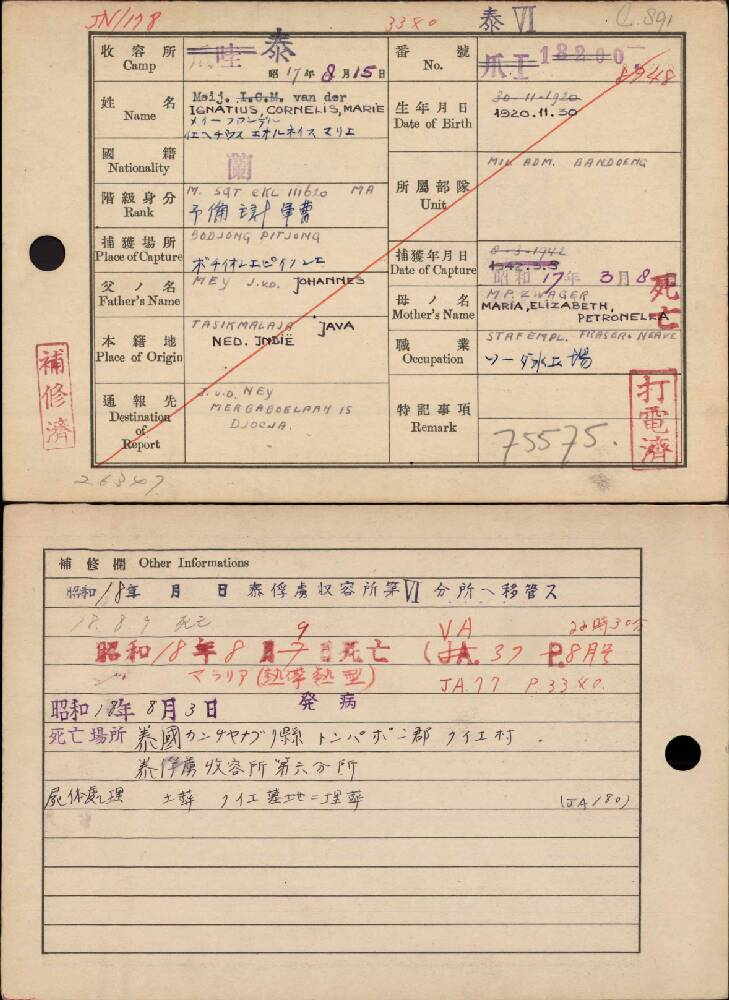 JN/178 3340 泰 VI C.891
收容所 Camp 爪哇 泰 昭17年8月15日
番號 No. 爪王 18200 8748
姓名 Name Meij. I.C.M. van der
IGNATIUS, CORNELIS, MARIE
メイーフアンデル
イエヘナチウス コオルネイス マリエ
生年月日 Date of Birth 30-11-1920
1920.11.30
國籍 Nationality 蘭
階級身分 Rank M. SGT EKL 111620 MA
予備主計軍曹
所屬部隊 Unit MIL ADM. BANDOENG
捕獲場所 Place of Capture BODJONG PITJONG
捕獲年月日 Date of Capture 8-3-1942
1942.3.8
昭和17年3月8日
父ノ名 Father's Name MEY J.v.D. JOHANNES
母ノ名 Mother's Name M.P. ZWAGER
MARIA, ELIZABETH, PETRONELLA
死亡
本籍地 Place of Origin TASIKMALAJA JAVA
NED. INDIË
職業 Occupation STAFEMPL. FRASER & NEAVE
ソーダ水工場
通報先 Destination of Report J.v.D. MEY
MERBABOELAAN 15
DJOCJA.
特記事項 Remark 75575.
補修濟
打電濟
26347
補修欄 Other Informations
昭和18年 月 日 泰俘虜収容所第VI分所ヘ移管ス
18.8.9 死亡 9 VA 22時30分
昭和18年8月7日死亡 (JA. 37 P.8月分
マラリア(熱帯熱型) JA.77 P.3340.
昭和18年8月3日 発病
死亡場所 泰國カンチヤナブリ縣トンパポン郡クイエ村.
泰俘虜収容所第六分所
屍体處理 土葬 クイエ墓地ニ埋葬 (JA180)